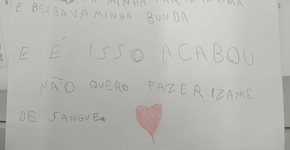 E BEIJAVA MINHA BUNDA
E É ISSO ACABOU
NÃO QUERO FAZER IZAME
DE SANGUE